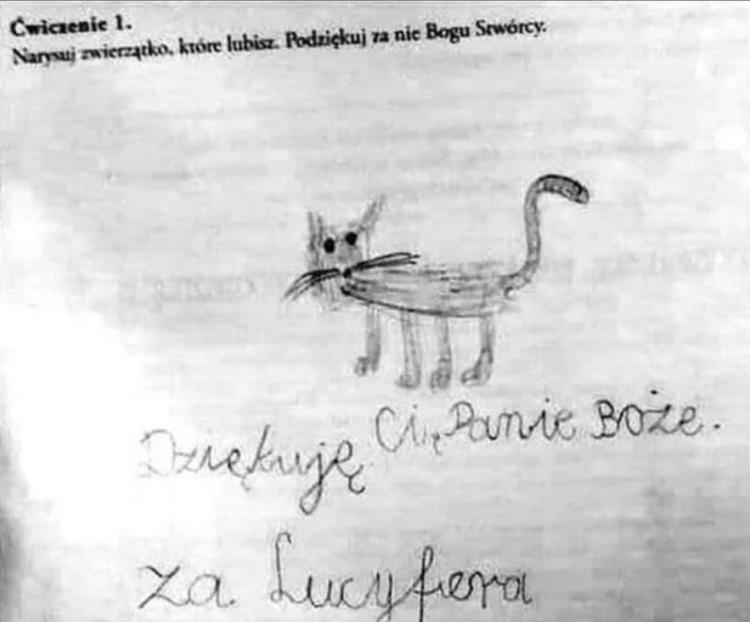 Ćwiczenie 1.
Narysuj zwierzątko, które lubisz. Podziękuj za nie Bogu Stwórcy.
Dziękuję Ci, Panie Boże.
za Lucyfera